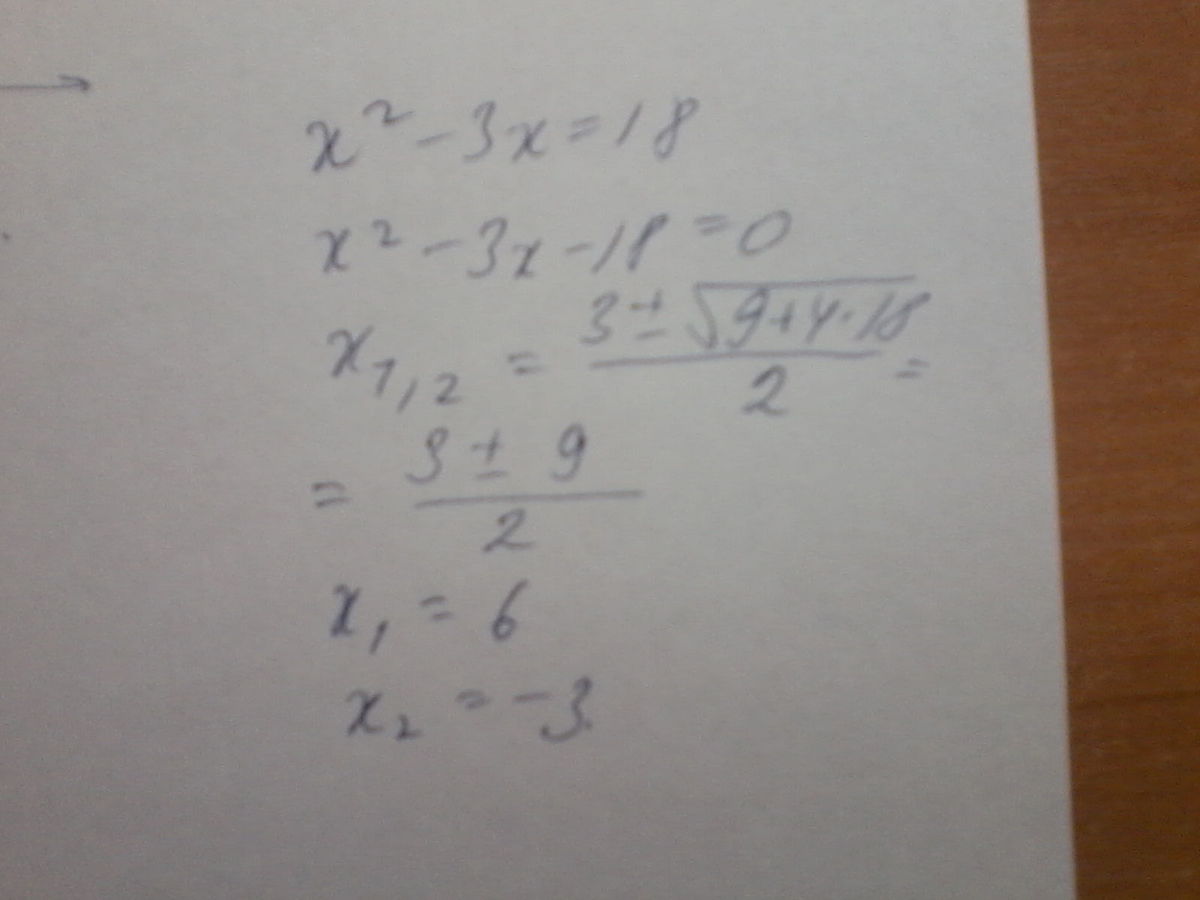 x² - 3x = 18
x² - 3x - 18 = 0
x₁,₂ = (3 ± √(9+4·18))/2 =
= (3 ± 9)/2
x₁ = 6
x₂ = -3